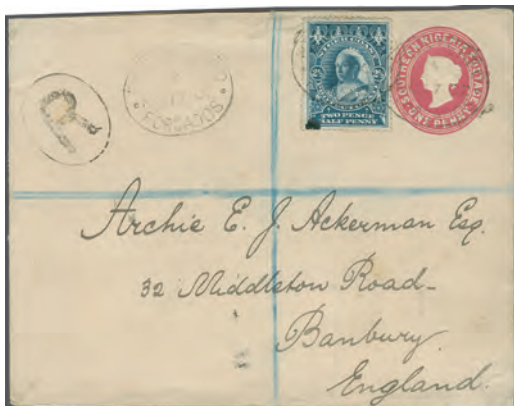 NIGER COAST
TWO PENCE
HALF PENNY
SOUTHERN NIGERIA POSTAGE
ONE PENNY
FORCADOS
R
Archie E. J. Ackerman Esq.
32 Middleton Road
Banbury
England.